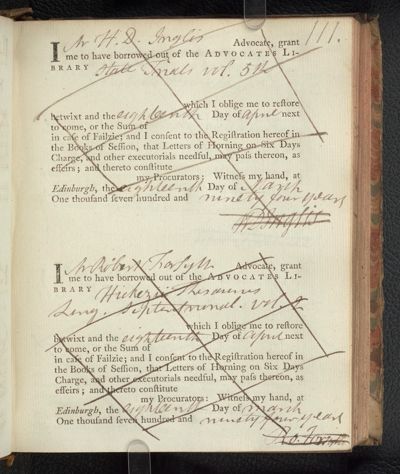 111.
I Mr H. D. Inglis Advocate, grant
me to have borrowed out of the ADVOCATES LI-
BRARY State Trials vol. 5th
which I oblige me to restore
betwixt and the eighteenth Day of April next
to come, or the Sum of
in case of Failzie; and I consent to the Registration hereof in
the Books of Session, that Letters of Horning on Six Days
Charge, and other executorials needful, may pass thereon, as
effeirs; and thereto constitute
my Procurators: Witness my hand, at
Edinburgh, the eighteenth Day of March
One thousand seven hundred and ninety four years
HD Inglis
I Mr Robert Forsyth Advocate, grant
me to have borrowed out of the ADVOCATES LI-
BRARY Hickesii Thesaurus
Ling. Septentrional. vol 2
which I oblige me to restore
betwixt and the eighteenth Day of April next
to come, or the Sum of
in case of Failzie; and I consent to the Registration hereof in
the Books of Session, that Letters of Horning on Six Days
Charge, and other executorials needful, may pass thereon, as
effeirs; and thereto constitute
my Procurators: Witness my hand, at
Edinburgh, the eighteenth Day of March
One thousand seven hundred and ninety four years
Ro. Forsyth